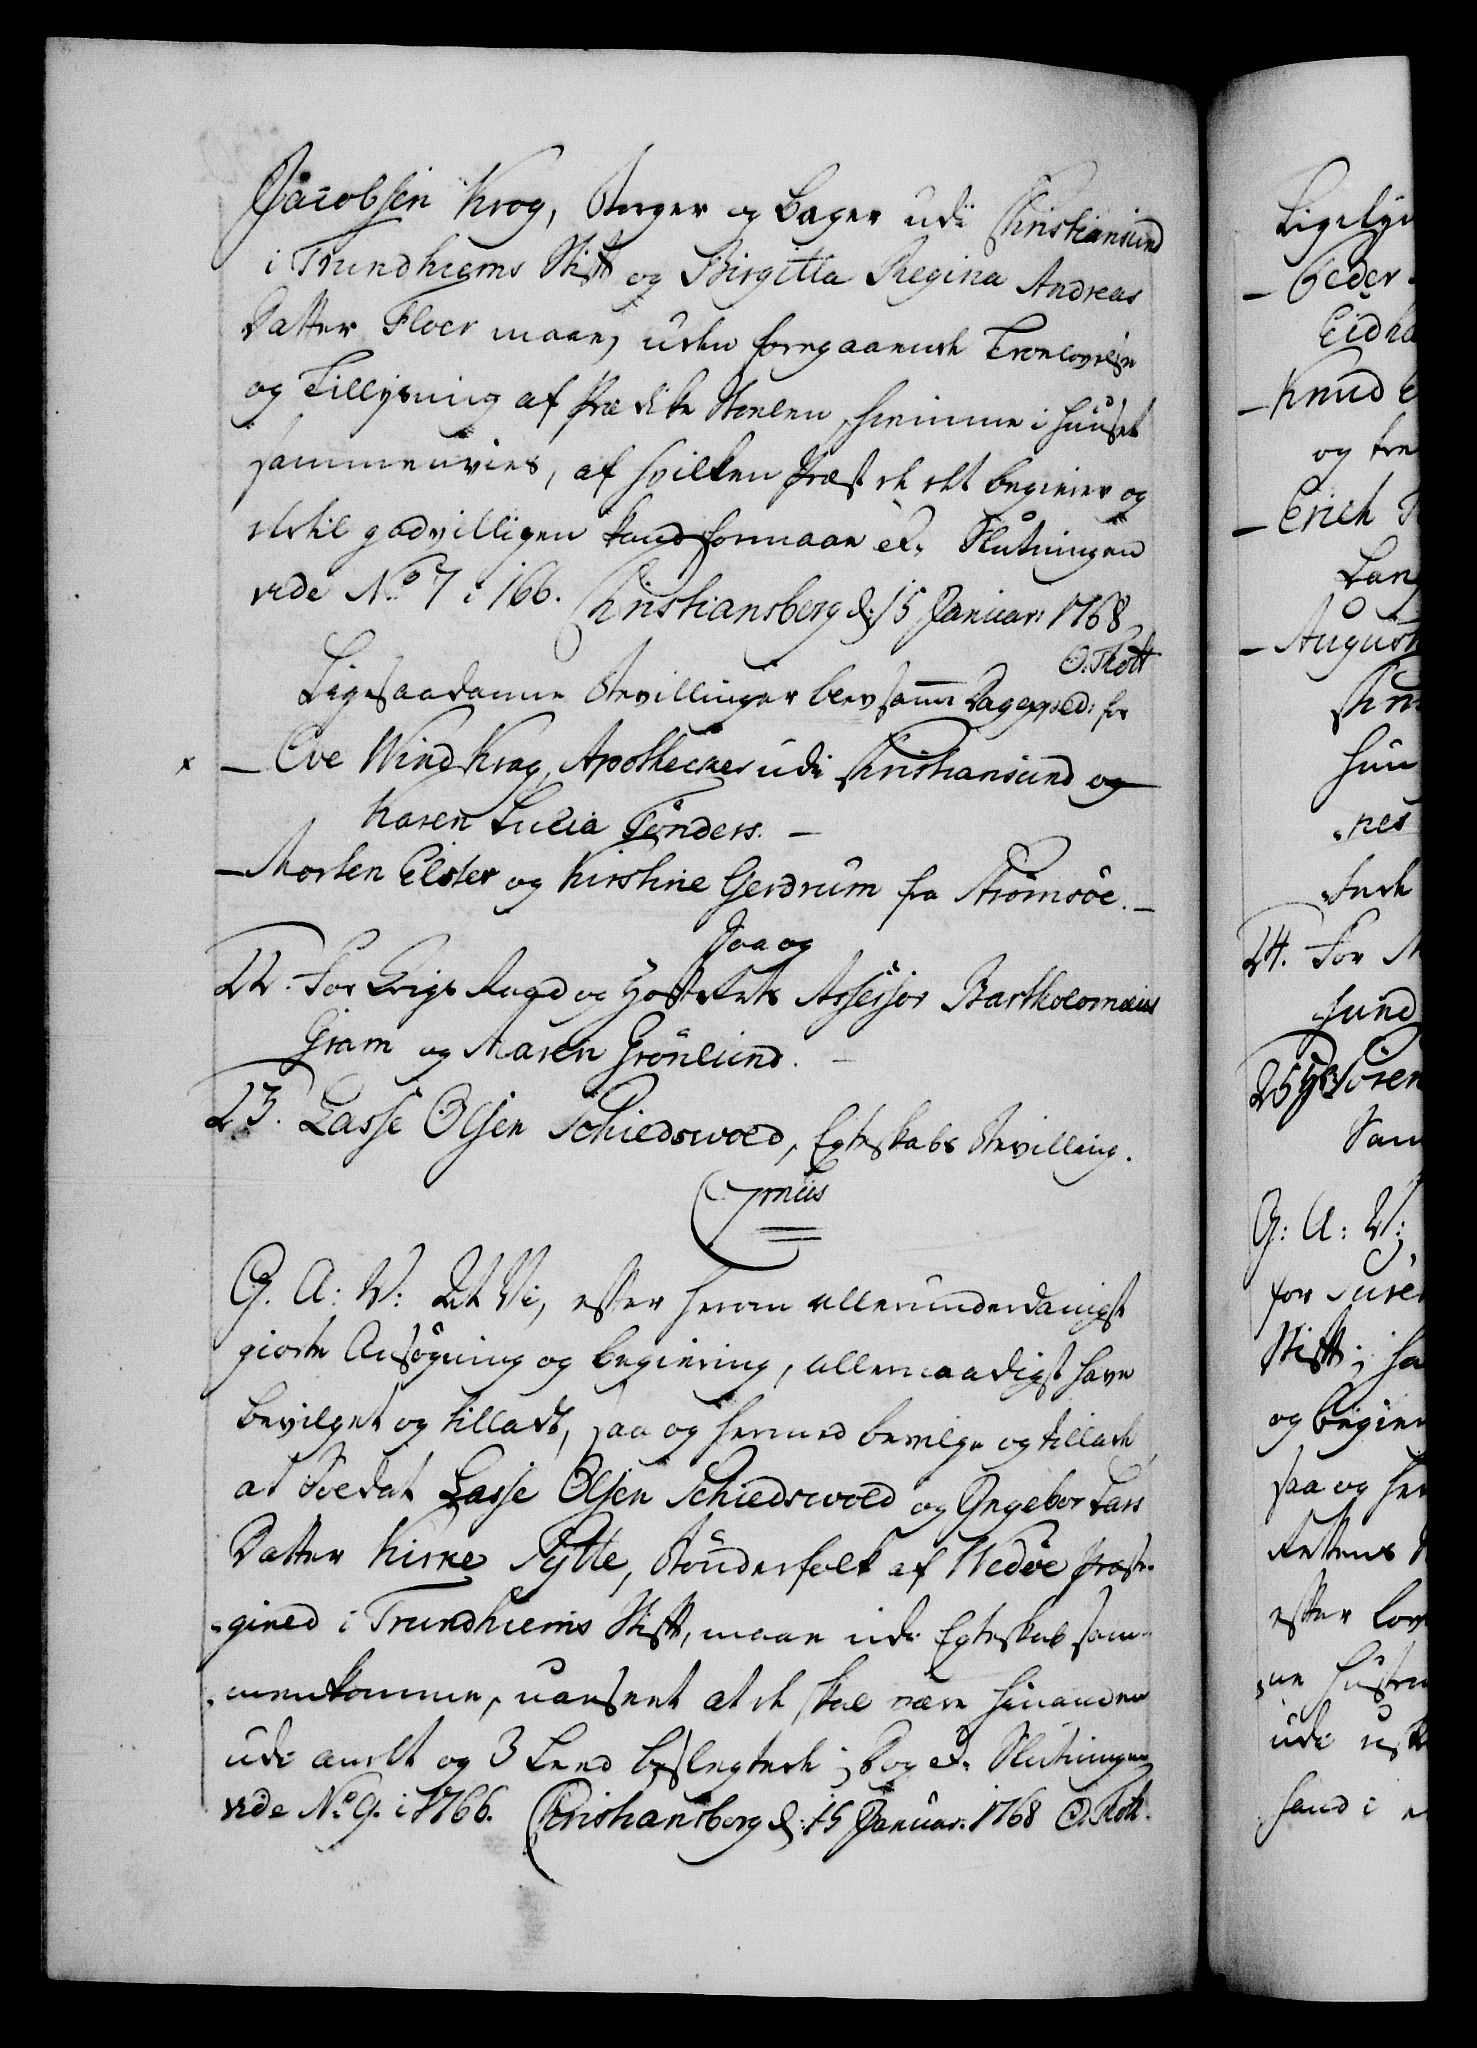 Jacobsen Krog, Borger og Bager udi Christiansund
i Trundhiems Stift og Birgitta Regina Andreas
Datter Floer maae, uden foregaaende Troelovelse
og Tillysning af Prædike Stoelen, hiemme i Huuset
sammenvies, af hvilken Præst de det begierer og
dertil godvilligen kand formaae etc. Slutningen
vide No. 7 i 166. Christiansborg d: 15 Januar: 1768
O. Thott
Ligesaadanne Bevillinger blev samme Dag exped: for
x – Eve Wind Krag, Apothecker udi Christiansund og
Karen Lucia Tønders. –
– Morten Elster og Kirstine Gerdrum fra Strømsøe. –
Joa og
22. For Krigs Raad og Hoff Rets Assessor Bartholomæus
Gram og Maren Grönlund. –
23. Lasse Olsen Schiedswold, Egteskabs Bevilling.
G. A: V: At Vi, efter herom allerunderdanigst
giorte Ansøgning og begiering, allernaadigst have
bevilget og tilladt, saa og hermed bevilge og tillade
at Soldat Lasse Olsen Schiedswold og Yngebor Lars
Datter Kirke Sylte, Bønderfolk af Wedøe Præste-
-gield i Trundhiems Stift, maae udi Egteskab sam-
-menkomme, uanseet at de skal være hinanden
udi andet og 3 Leed beslegtede; Dog etc. Slutningen
vide No. 9. i 1766. Christiansborg d: 15 Januar: 1768 O. Thott.
Ligely
– Peder
Eidh
– Knud
og
– Erich
Lan
– August
hun
24. For
sund
25 Søren
G: A: V:
for Søren
Stift; ha
og begier
saa og her
Rettens
efter Lov
udi